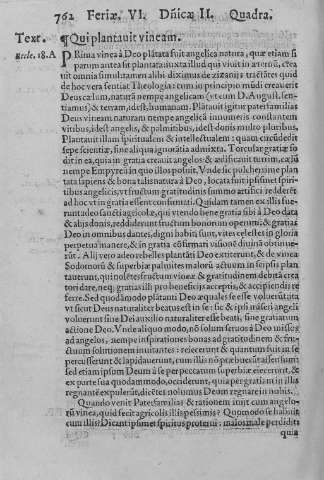 762 Feriæ. VI. Dñicæ II. Quadra.
Text. ¶Qui plantauit vineam.
Eccle. 18.A PRima vinea à Deo plãtata fuit angelica natura, quæ etiam si
parum antea sit plantata iuxta illud qui viuit in æternũ, crea
uit omnia simul: tamen alibi diximus de zizanijs tractãtes quid
de hoc vera sentiat Theologia: cum in principio mũdi creauerit
Deus cælum, naturã nempe angelicam (vt cum D. August. sen-
tiamus) & terram, idest, humanam. Plãtauit igitur paterfamilias
Deus vineam naturam nempe angelicã innumeris constantem
vitibus, idest angelis, & palmitibus, idest donis multo pluribus,
Plantauit illam spiritualem & intellectualem: quam circũdedit
sepe scientiæ, sine aliqua ignorãtia admixta. Torcular gratiæ fo
dit in ea, quia in gratia creauit angelos & ædificauit turrim, cælũ
nempe Empyreũ in quo illos posuit, Vnde sic pulcherrime plan
tata sapiens & bona talis natura à Deo, locata fuit ipsi met spiri-
tibus angelicis, vt fructum gratitudinis summo artifici redderẽt
ad hoc vt in gratia essent confirmati. Quidam tamen ex illis fue-
runt adeo sancti agricolæ, qui vtendo bene gratia sibi à Deo data
& alijs donis, reddiderunt fructum bonorum operum; & gratias
Deo in omnibus dantes, digni habiti sunt, vites esse illæ in gloria
perpetua manere, & in gratia cõfirmari visione diuina obtinue-
rũt. Alij vero adeo rebelles plantãti Deo extiterunt, & de vinea
Sodomorũ & superbiæ palmites malorũ actuum in seipsis plan
tauerunt, qui nos te fructum vineæ & gratitudinem debitã crea
tori dare, neq; gratias illi pro beneficijs acceptis, & accipiendis re
ferre. Sed quodãmodo plãtanti Deo æquales se esse voluerũt ita
vt sicut Deus naturaliter beatus est in se: sic & ipsi miseri angeli
voluerunt sine Dei auxilio naturaliter esse beati, sine gratiarum
actione Deo. Vnde aliquo modo, nõ solum seruos à Deo missos
ad angelos, nempe inspirationes bonas ad gratitudinem & fru-
ctuum solutionem inuitantes: reiecerunt & quantum fuit in se
percusserunt & lapidauerunt, cum illis nõ præbuerũt assensum
sed etiam ipsum Deum à se per peccatum superbiæ eiecerunt, &
ex parte sua quodammodo, occiderunt, quia per gratiam in illis
regnantẽ expulerũt, dicẽtes nolumus Deum regnare in nobis.
Quando venit Paterfamiliàs & rationem inijt cum angelo-
rũ vinea, quid fecit agricolis illis pessimis? Quomodo se habuit
cum illis? Dicant ipsimet spiritus proterui: malos male perdidit:
quia